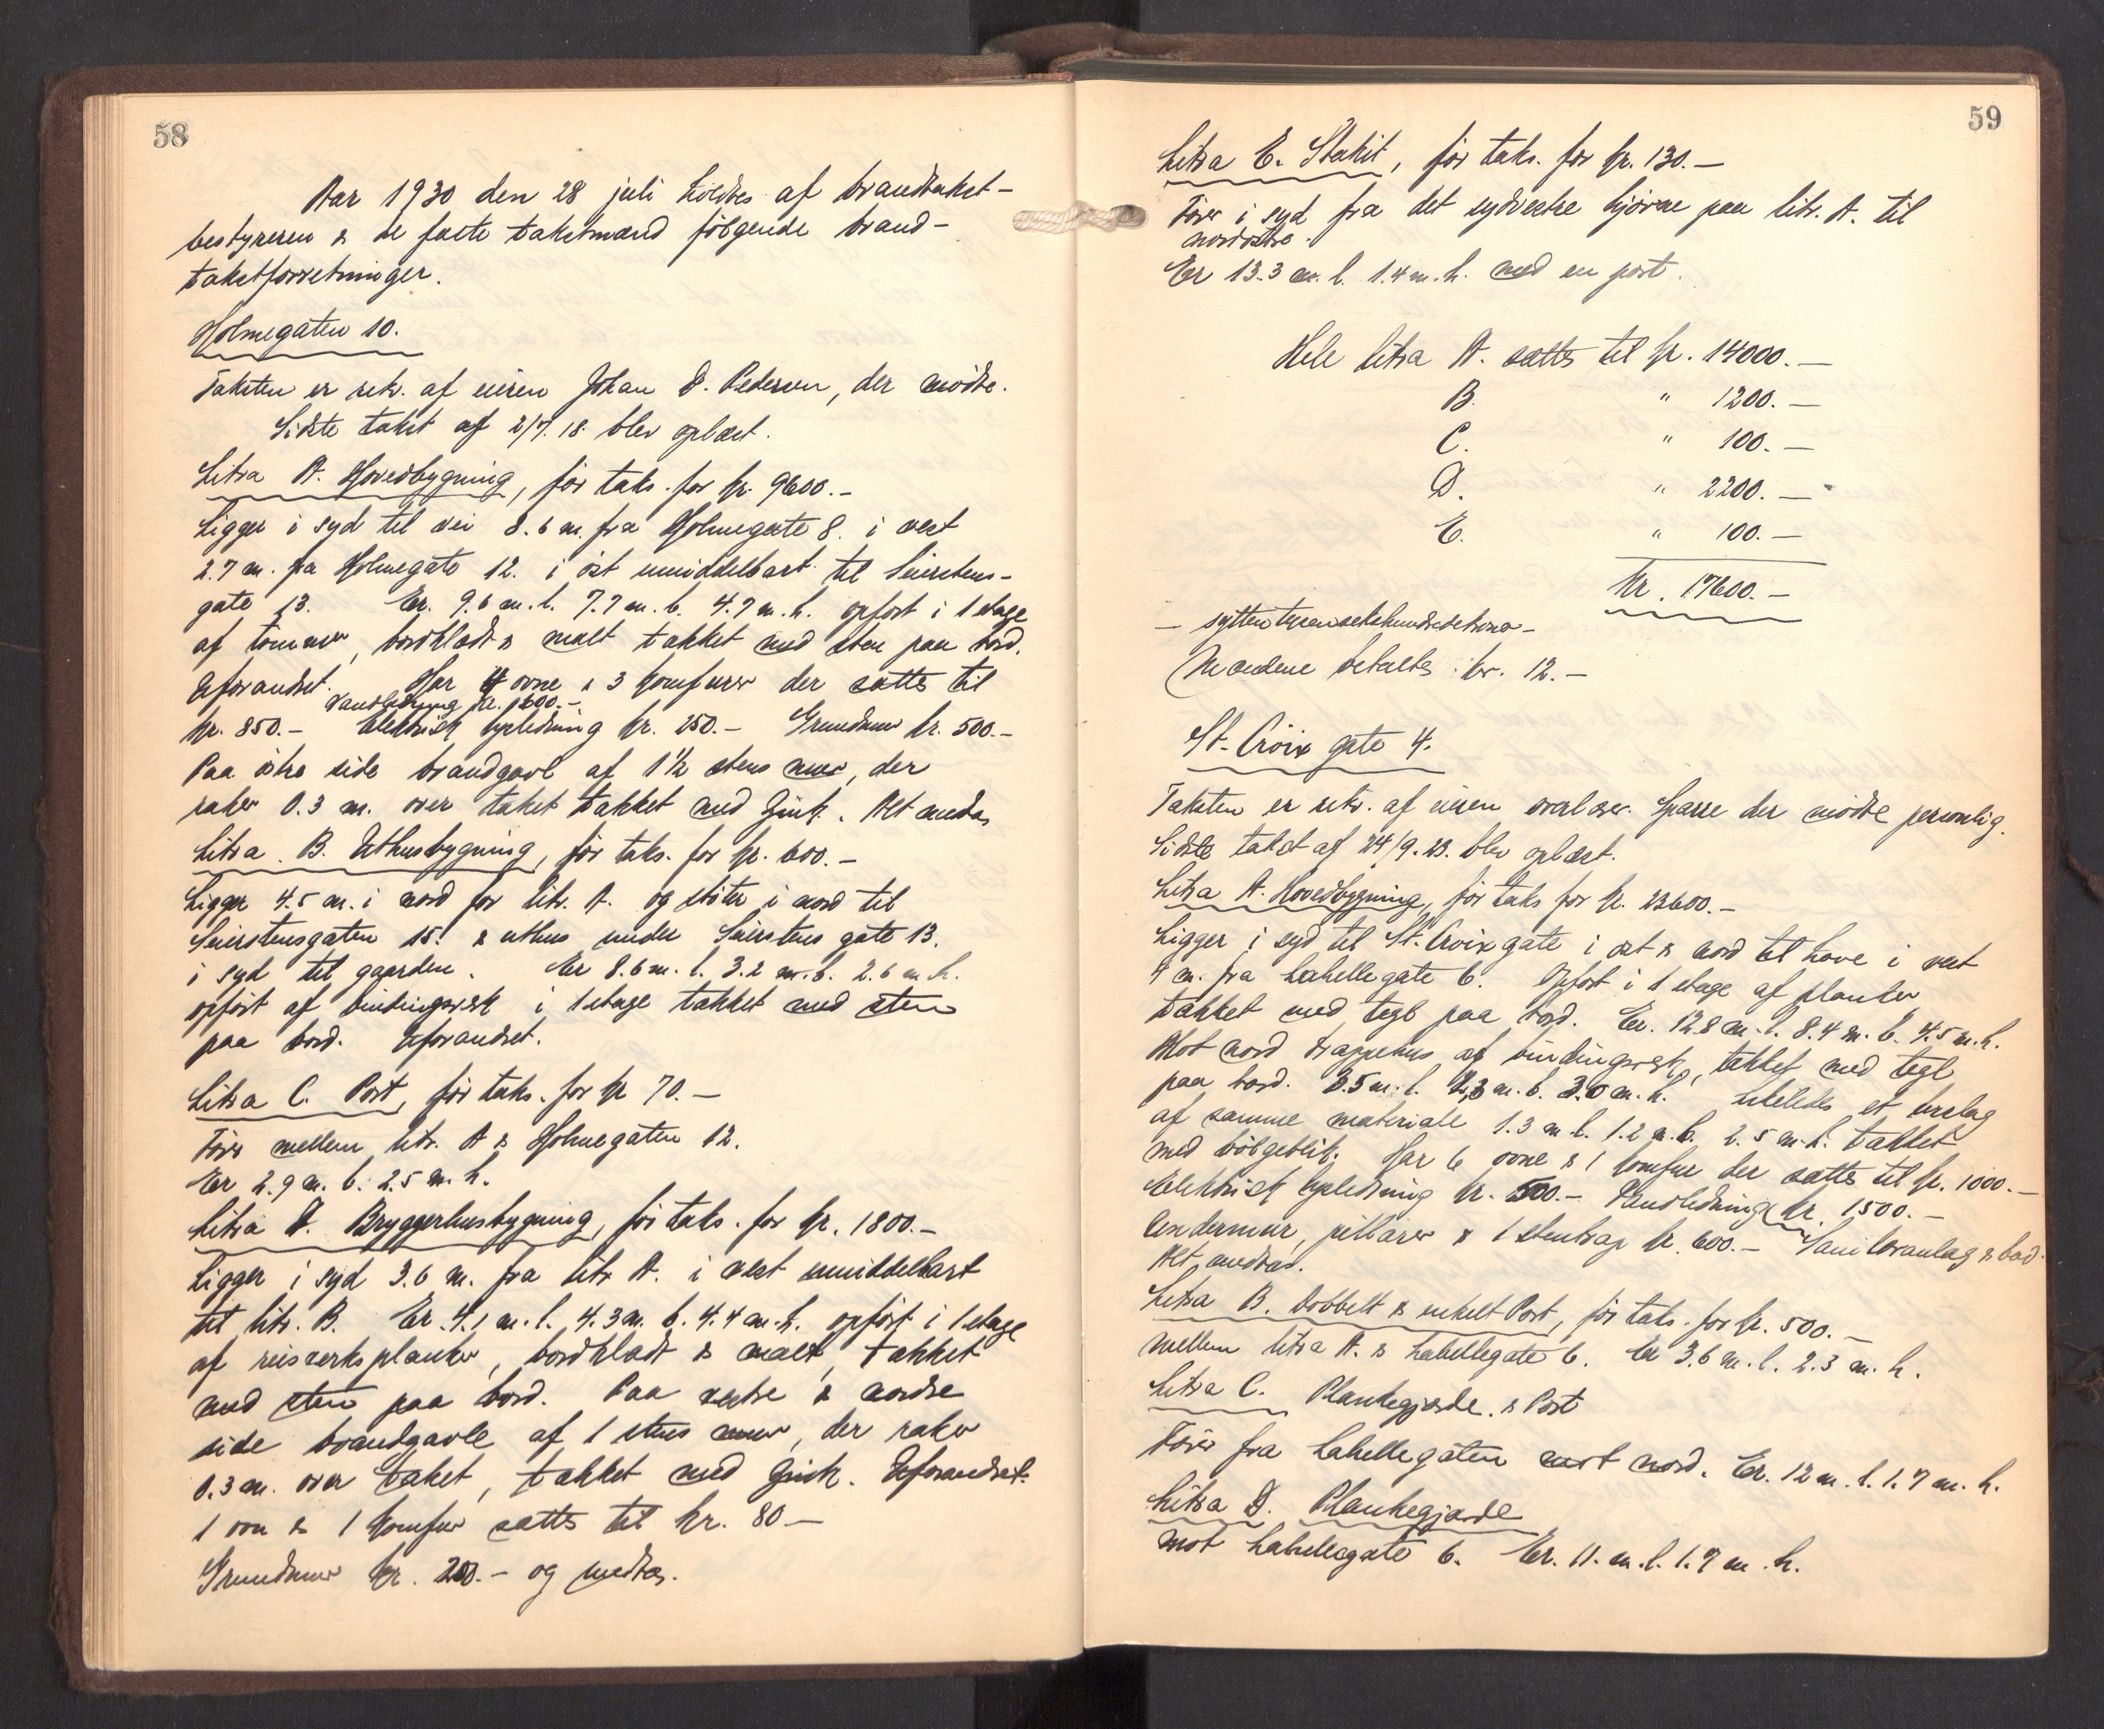 58
Aar 1930 den 28 juli holdtes af brandtakst-
bestyreren & de faste takstmænd följgende brand-
takstforretninger.
Holmegaten 10.
Taksten er rekv. af eieren Johan D. Pedersen, der mödte.
Sidste takst af 2/7.18. blev oplæst.
Litra A. Hovedbygning, för taks. for kr. 9600.-
Ligger i syd til vei 8.6 m. fra Holmegate 8. i vest
2.7 m. fra Holmegate 12. i öst umiddelbart til Seierstens-
gate 13. Er. 9.6 m. l. 7.7 m. b. 4.7 m. h. opfört i 1 etage
af tömmer, bordklædt & malt tækket med sten paa bord.
Uforandret. Har 4 ovne & 3 komfurer der sættes til
Vandledning kr. 1600.-
kr. 850.- Elektrisk lysledning kr. 250.- Grundmur kr. 500.-
Paa östre side brandgavl af 1 1/2 stens mur, der
raker 0.3 m. over taket tækket med Zink. Alt medtas
Litra B. Uthusbygning, för taks. for kr. 600.-
Ligger 4.5 m. i nord for litr. A. og stöter i nord til
Seierstensgaten 15. & uthus under Seierstens gate 13.
i syd til gaarden. Er 8.6 m. l. 3.2 m. b. 2.6 m. h.
opfört af bindingsverk i 1 etage tækket med sten
paa bord. Uforandret.
Litra C. Port, för taks. for kr 70.-
Förer mellem litr. A & Holmegaten 12.
Er 2.9 m. b. 2.5 m. h.
Litra D. Bryggerhusbygning, för taks. for kr. 1800.-
Ligger i syd 3.6 m. fra litr A. i vest umiddelbart
til litr. B. Er 4.1 m. l. 4.3 m. b. 4.4 m. h. opfört i 1 etage
af reisverksplanker, bordklædt & malt, tækket
med sten paa bord. Paa vestre & nordre
side brandgavle af 1 stens mur, der raker
0.3 m. over taket, tækket med Zink. Uforandret.
1 ovn & 1 komfur sættes til kr. 80-
Grundmur kr. 200.- og medtas.
59
Litra E. Stakit, för taks. for kr. 130.-
Förer i syd fra det sydvestre hjörne paa litr. A. til
nordöstre.
Er 13.3 m. l. 1.4 m. h. med en port.
Hele litra A. sættes til kr. 14000.-
B. " 1200.-
C. " 100.-
D. " 2200.-
E. " 100.-
kr. 17600.-
- sytten tusen sekshundrede kroner-
Mændene betaltes: kr. 12.-
St. Croix gate 4.
Taksten er rekv. af eieren overlærer Sparre der mödte personlig.
Sidste takst af 24/9.23. blev oplæst.
Litra A. Hovedbygning, för taks for kr. 23600.-
Ligger i syd til St. Croix gate i öst & nord til have i vest
4 m. fra Labellegate 6. Opfört i 1 etage af planker
tækket med tegl paa bord. Er. 12.8 m. l. 8.4 m. b. 4.5 m. h.
Mot nord trappehus af bindingsverk, tækket med tegl
paa bord. 3.5 m. l. 2,3 m. b. 3.0 m. h. Likeledes et birslag
af samme materiale 1.3 m. l. 1.2 m. b. 2.5 m. h. tækket
med bölgeblik. Har 6 ovne & 1 komfur der sættes til kr. 1000.-
Elektrisk lysledning kr. 500.- Vandledning kr. 1500.-
Undermur, pillarer & 1 stentrap kr. 600.- Saniteranlæg & bad.
Alt medtas.
Litra B. Dobbelt & enkelt Port, för taks. for kr. 500.-
mellem litra A. & Labellegate 6. Er 3.6 m. l. 2.3 m. h.
Litra C. Plankegjærde. & Port
Förer fra Labellegaten mot nord. Er. 12 m. l. 1.7 m. h.
Litra D. Plankegjærde
mot Labellegate 6. Er. 11. m. l. 1.7 m. h.